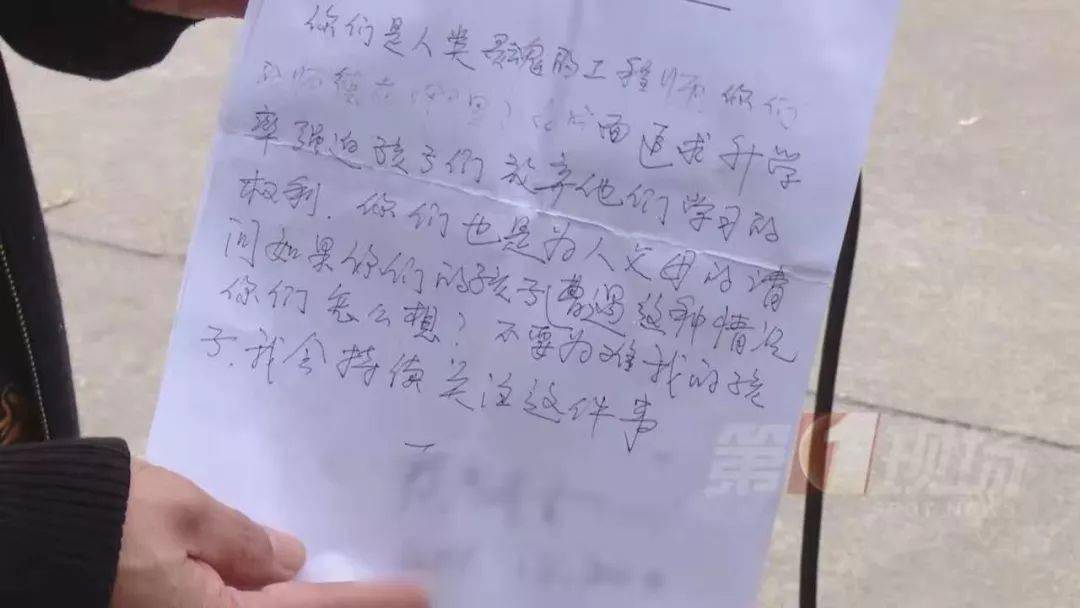 你们是人类灵魂的工程师你们
的师德在 面追求升学
率强迫孩子们放弃他们学习的
权利.你们也是为人父母的请
问如果你们的孩子遭遇这种情况
你们怎么想?不要为难我的孩
子.我会持续关注这件事
第1现场
SPOT NEWS